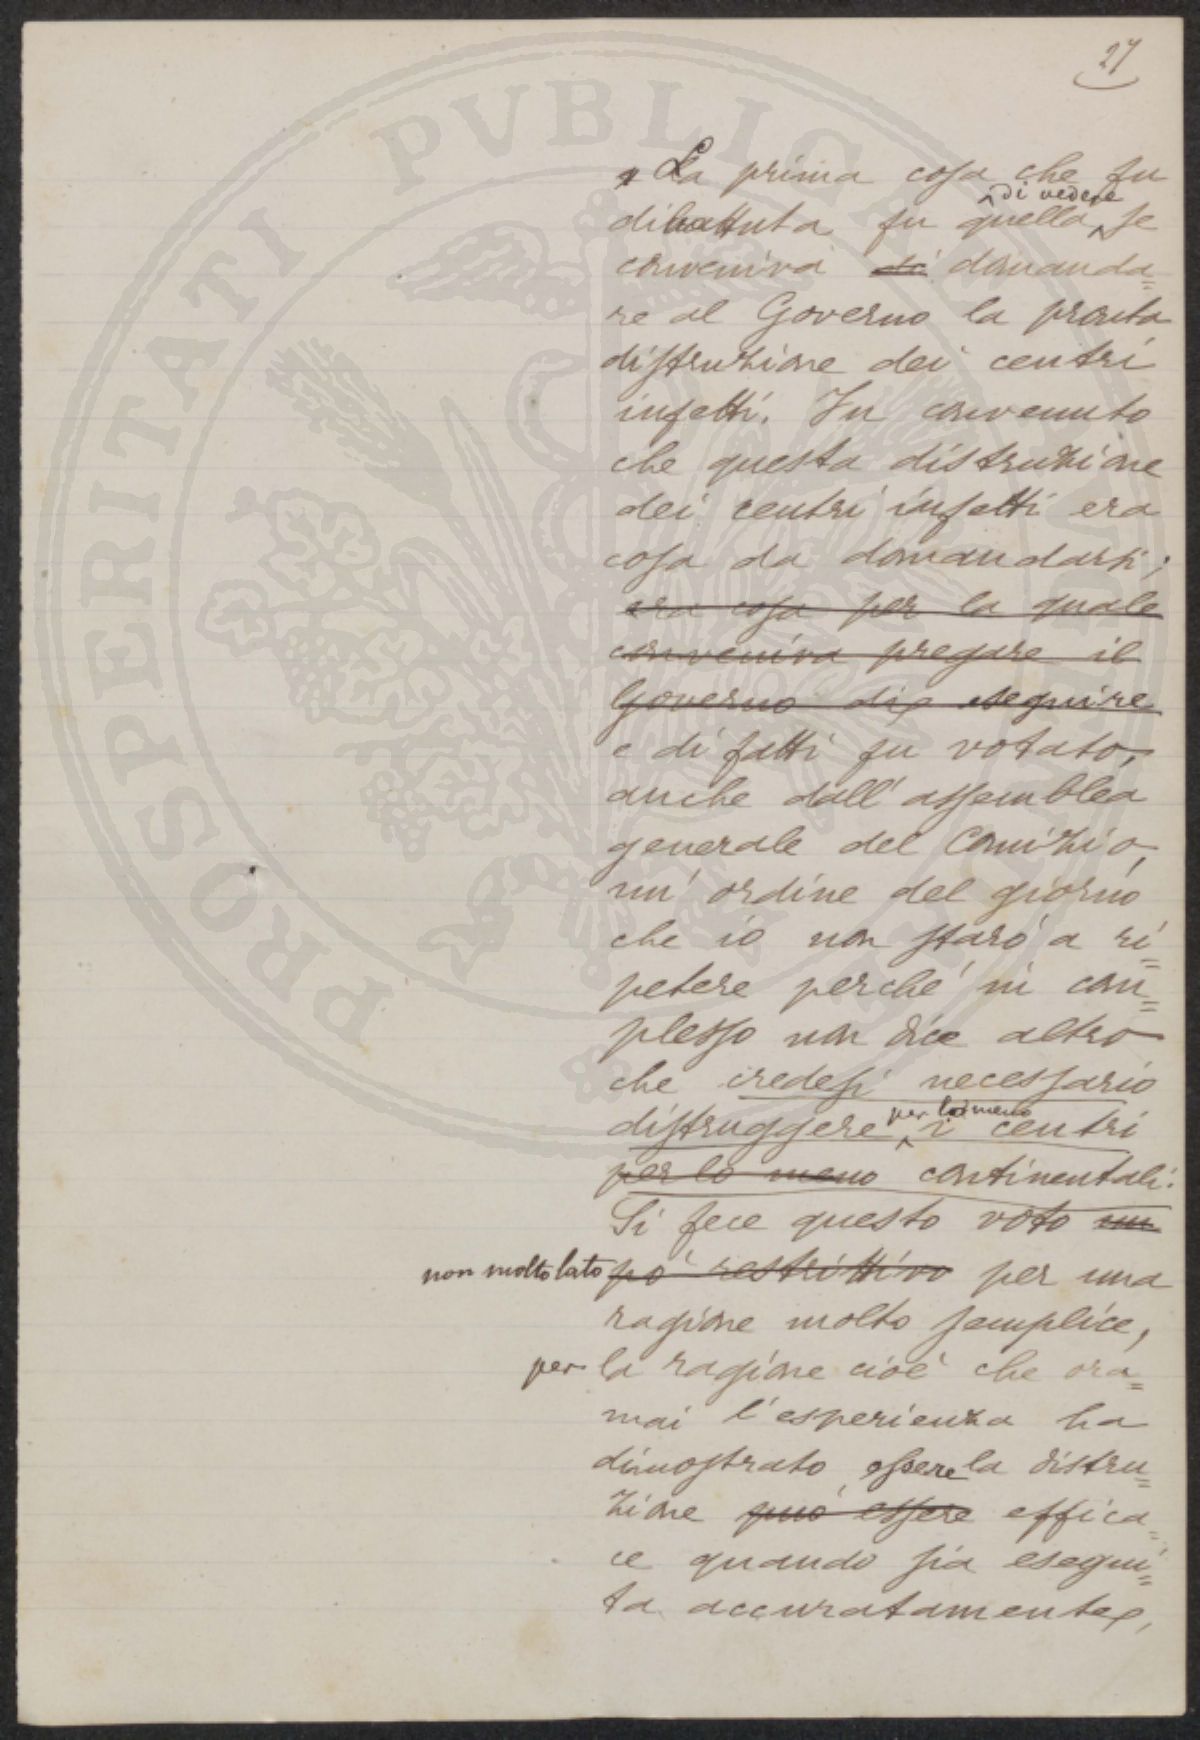 27
La prima cosa che fu
di vedere
dibattuta fu quella se
conveniva di domanda=
re al Governo la pronta
distruzione dei centri
infetti. Fu convenuto
che questa distruzione
dei centri infetti era
cosa da domandarsi;
era cosa per la quale
conveniva pregare il
Governo di eseguire
e di fatti fu votato,
anche dall'assemblea
generale del Comizio,
un' ordine del giorno
che io non starò a ri=
petere perché in com=
plesso non dice altro
che credesi necessario
per lo meno
distruggere i centri
per lo meno continentali.
Si fece questo voto un
non molto lato pò restrittivo per una
ragione molto semplice,
per la ragione cioè che ora=
mai l'esperienza ha
dimostrato essere la distru=
zione può essere effica=
ce quando sia esegui=
ta accuratamente,
PROSPERITATI PVBLICAE